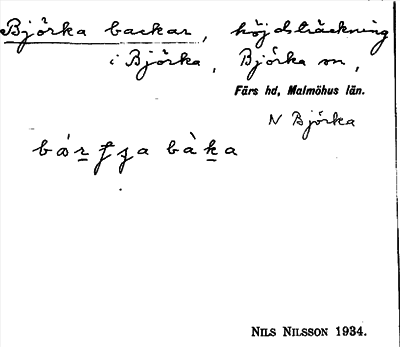 Björka backar, höjdsträckning
i Björka, Björka sn,
Färs hd, Malmöhus län.
N Björka
bàka
NILS NILSSON 1934.